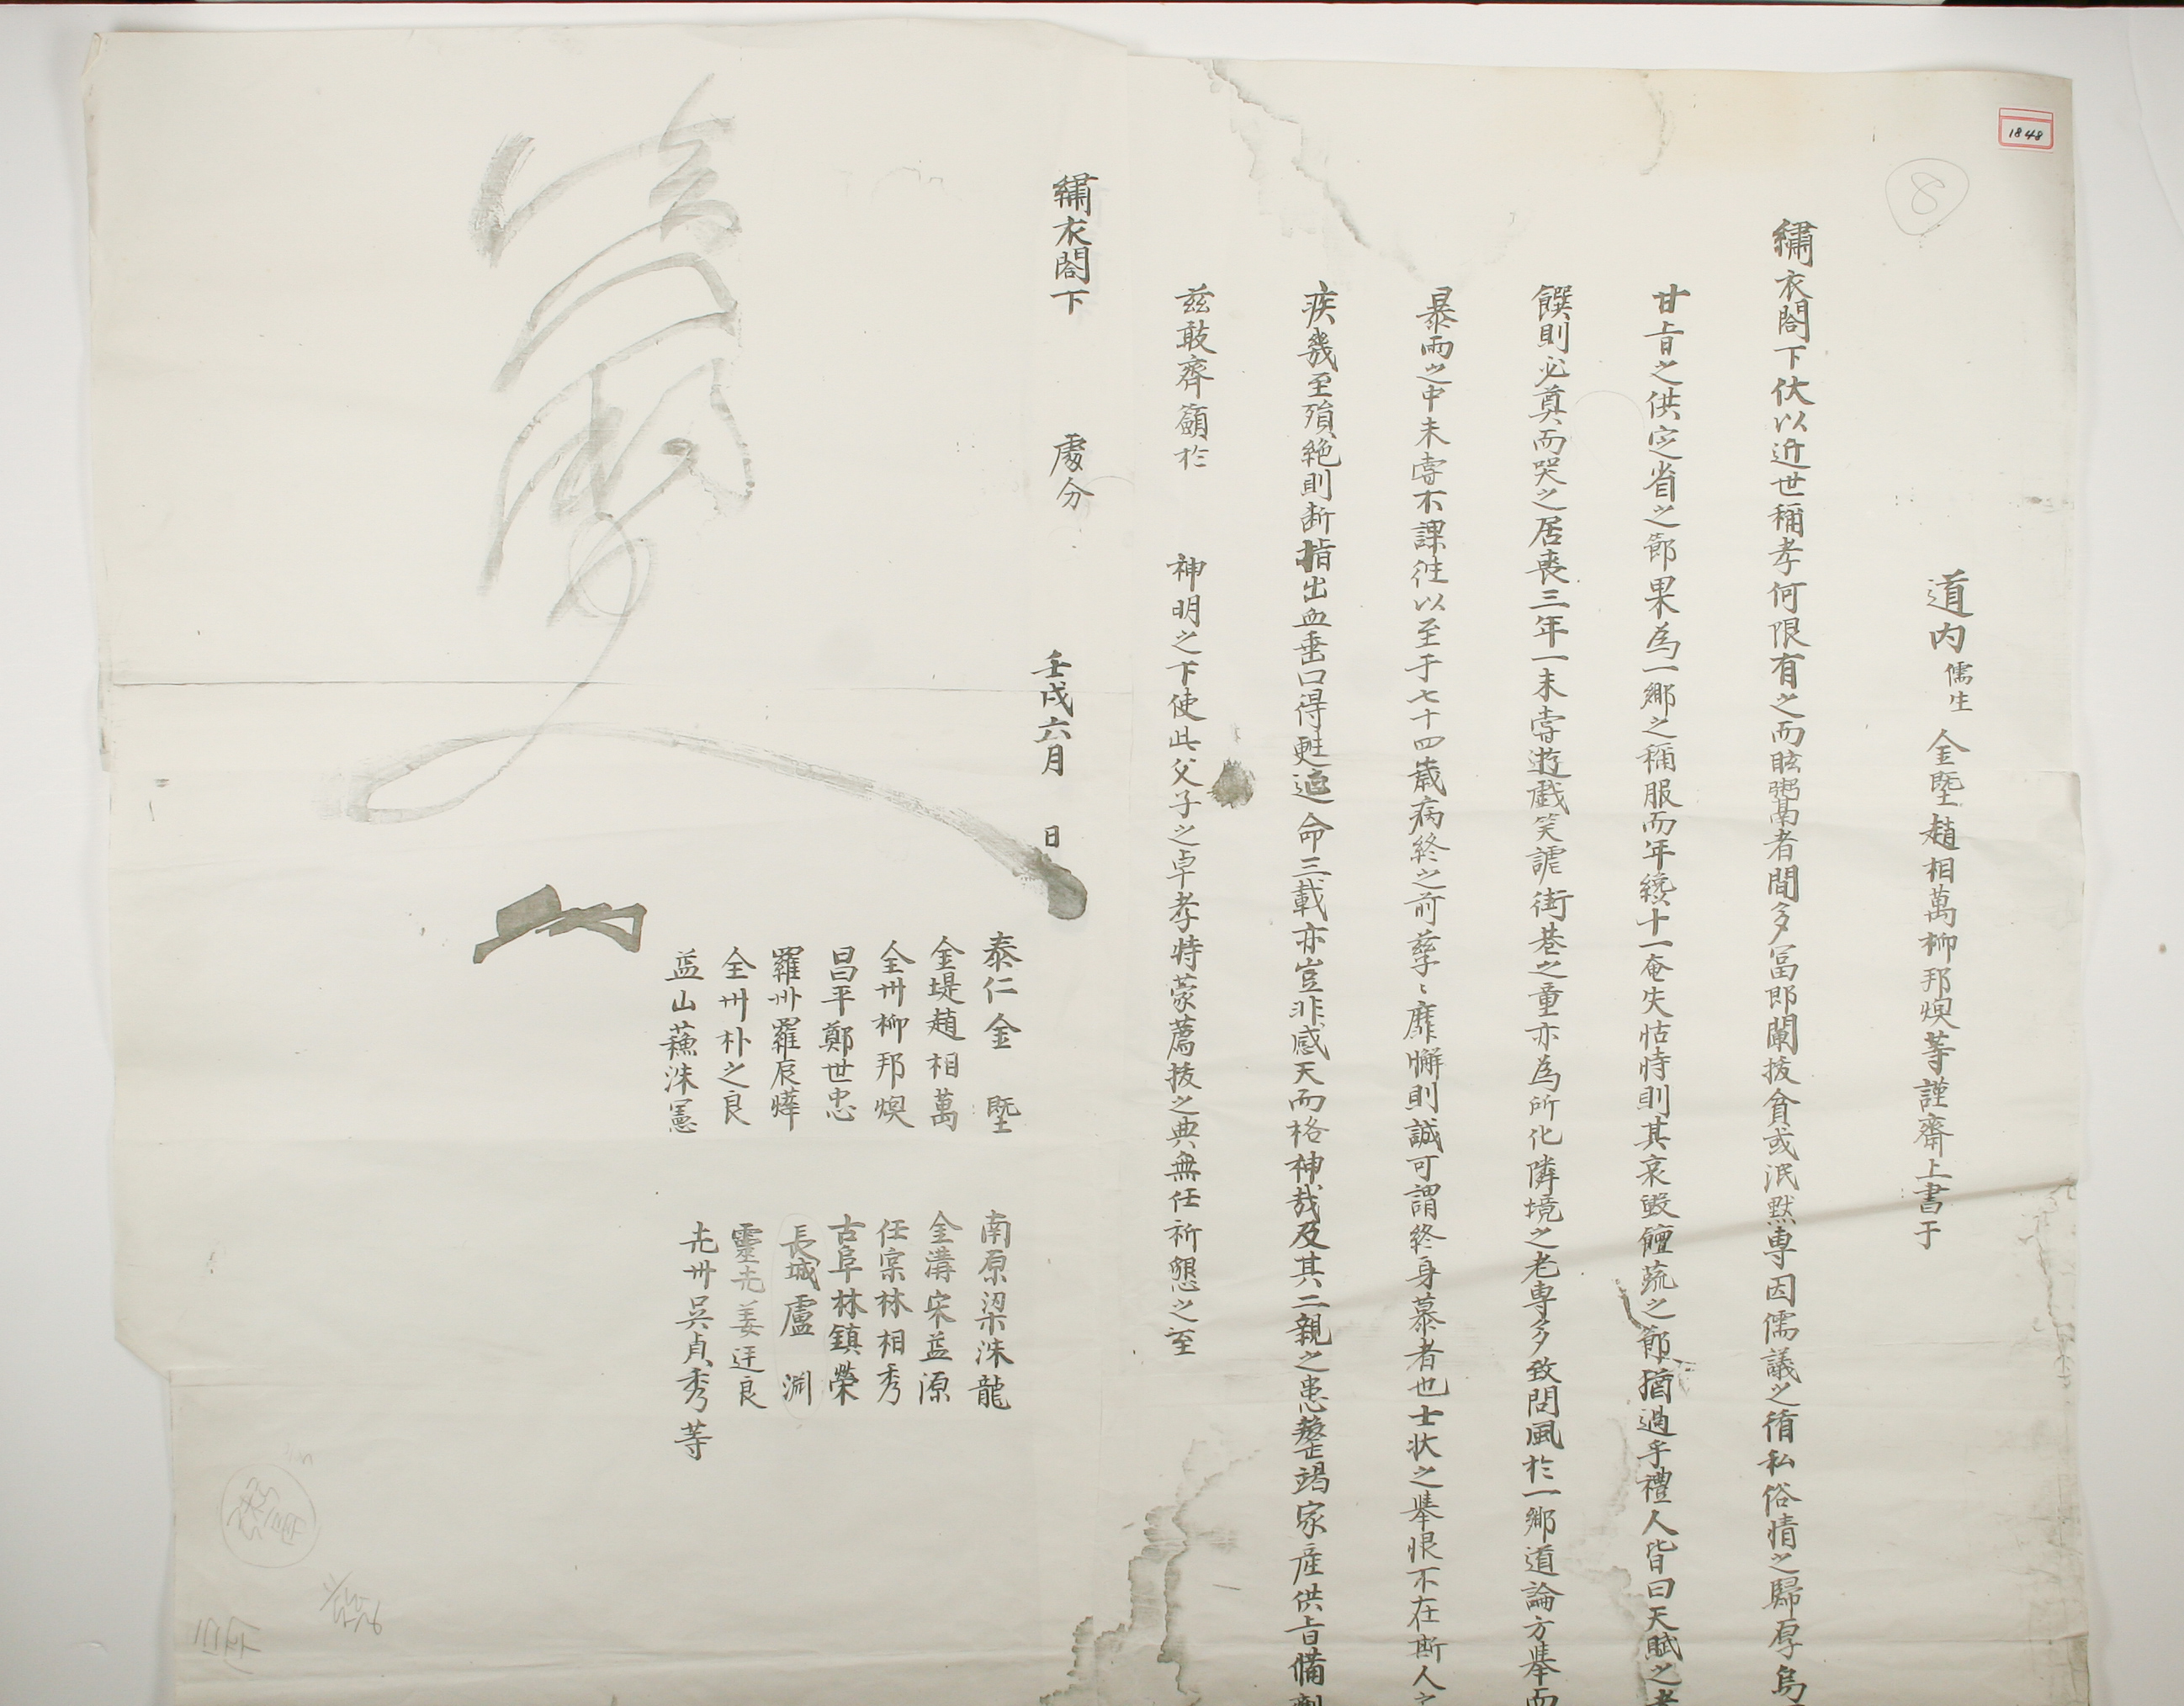 1848
8
道内 儒生 金塈趙相萬柳邦煥等謹齋上書于
繡衣閤下伏以近世稱孝何限有之而眩鬻者間多冨即闡揆貧或泯默専因儒議之循私俗情之歸厚烏
甘旨之供定省之節果為一鄉之稱服而年纔十一奄失怙恃則其哀毀饘蔬之節猶過乎禮人皆曰天賦之孝
饌則必奠而哭之居喪三年一未嘗遊戲笑謔街巷之童亦為所化隣境之老専多致問風於一鄉道論方擧而
暴雨之中未嘗不課徃以至于七十四歲病終之前孳〻靡懈則誠可謂終身慕者也士狀之擧恨不在斯人之
疾幾至殞絶則断指出血垂口得甦過命三載亦豈非感天而格神哉及其二親之患整竭家産供旨備劑
兹敢齊籲於 神明之下使此父子之卓孝特蒙薦拔之典無任祈懇之至
繡衣閤下 處分
壬戌六月 日
泰仁 金 塈 南原梁洙龍
金堤趙相萬 金溝宋益源
全州柳邦煥 任宗林相秀
昌平鄭世忠 古阜林鎮榮
羅州羅辰 長城盧 淵
全州朴之良 靈光姜廷良
益山蘓洙憲 光州吳貞秀等